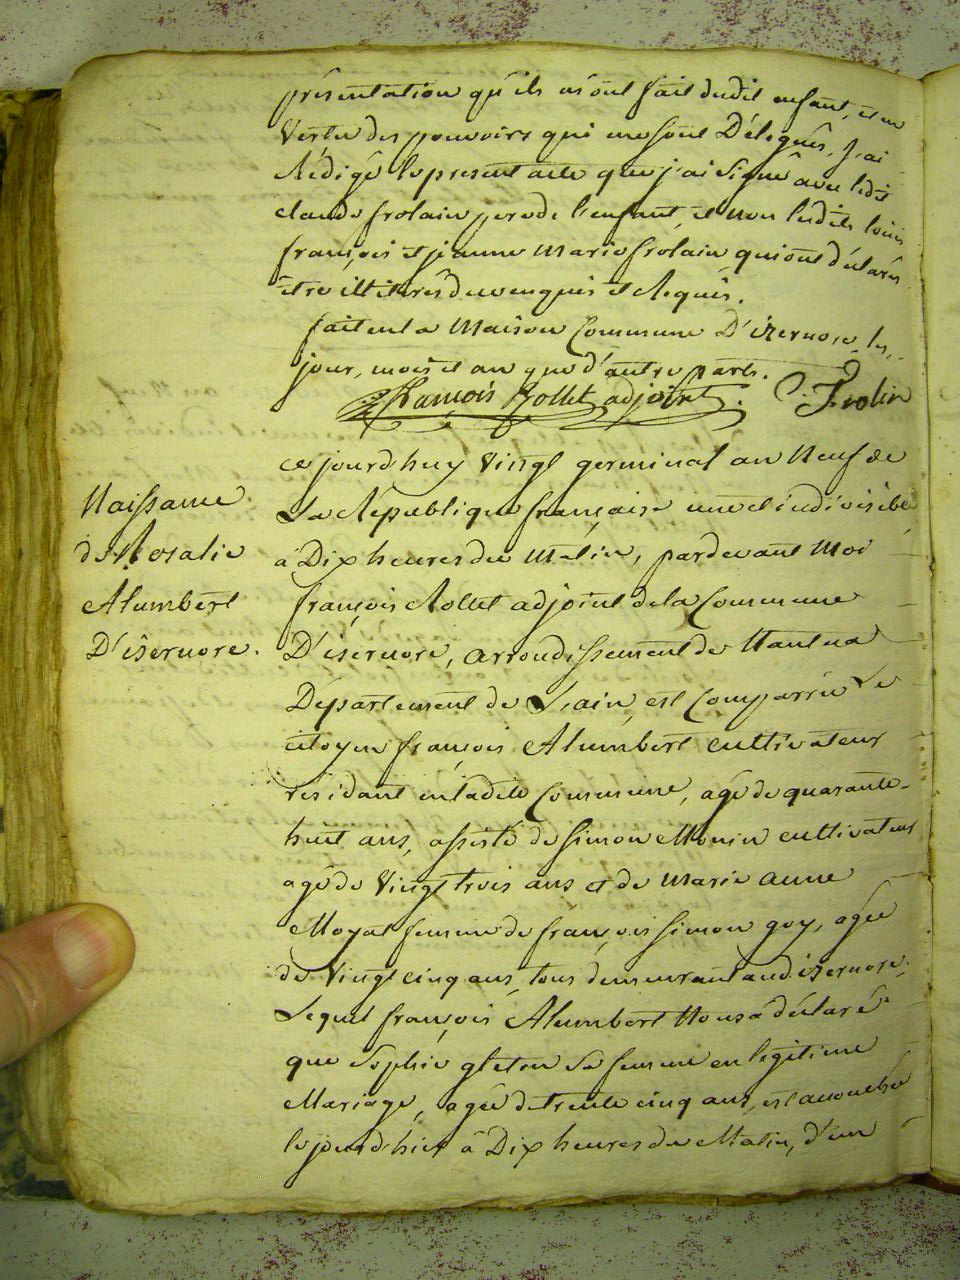 présentation qu'ils m'ont fait dudit enfant, et en
Vertu des pouvoirs qui me sont Délégués, J'ai
Rédigé le présent acte que j'ai signé avec ledit
claude frolain pere de l'enfant, et non lesdits louis
françois et jeanne marie frolain qui ont déclarés
être illitérés de ce enquis et Requis.
fait en la Maison Commune D'izernore, les
jour, mois et an que d'autre parts.
François Rollet adjoint. C. Frolin
ce jourd'huy Vingt germinal an Neuf de
La République française une et indivisible
à Dix heures du Matin, pardevant Moi
françois Rollet adjoint de la Commune
D'isernore, arrondissement de Nantua
Département de L'ain, est Comparru Le
citoyen françois Alumbert cultivateur
résidant en ladite Commune, agé de quarante-
huit ans, assisté de Simon Monin cultivateur
agé de Vingt trois ans et de Marie anne
Moyat femme de françois Simon goy, agée
de Vingt cinq ans, tous demeurant aud. izernore;
Lequel françois Alumbert Nous a déclaré
que Sophie gleton Sa femme en légitime
Mariage, agée de trente cinq ans, est accouchée
le jourd'hier à Dix heures du Matin, d'un
Naissance
de Rosalie
Alumbert
D'isernore.